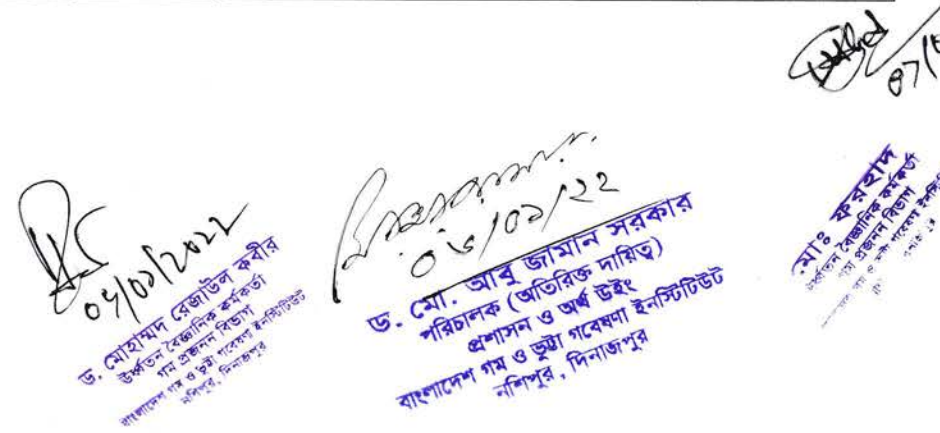 ০৬/০১/২০২২
ড. মোহাম্মদ রেজাউল কবীর
উর্ধ্বতন বৈজ্ঞানিক কর্মকর্তা
গম প্রজনন বিভাগ
বাংলাদেশ গম ও ভুট্টা গবেষণা ইনস্টিটিউট
নশিপুর, দিনাজপুর
০৬/০১/২২
ড. মো. আবু জামান সরকার
পরিচালক (অতিরিক্ত দায়িত্ব)
প্রশাসন ও অর্থ উইং
বাংলাদেশ গম ও ভুট্টা গবেষণা ইনস্টিটিউট
নশিপুর, দিনাজপুর
মোঃ ফরহাদ
উর্ধ্বতন বৈজ্ঞানিক কর্মকর্তা
গম প্রজনন বিভাগ